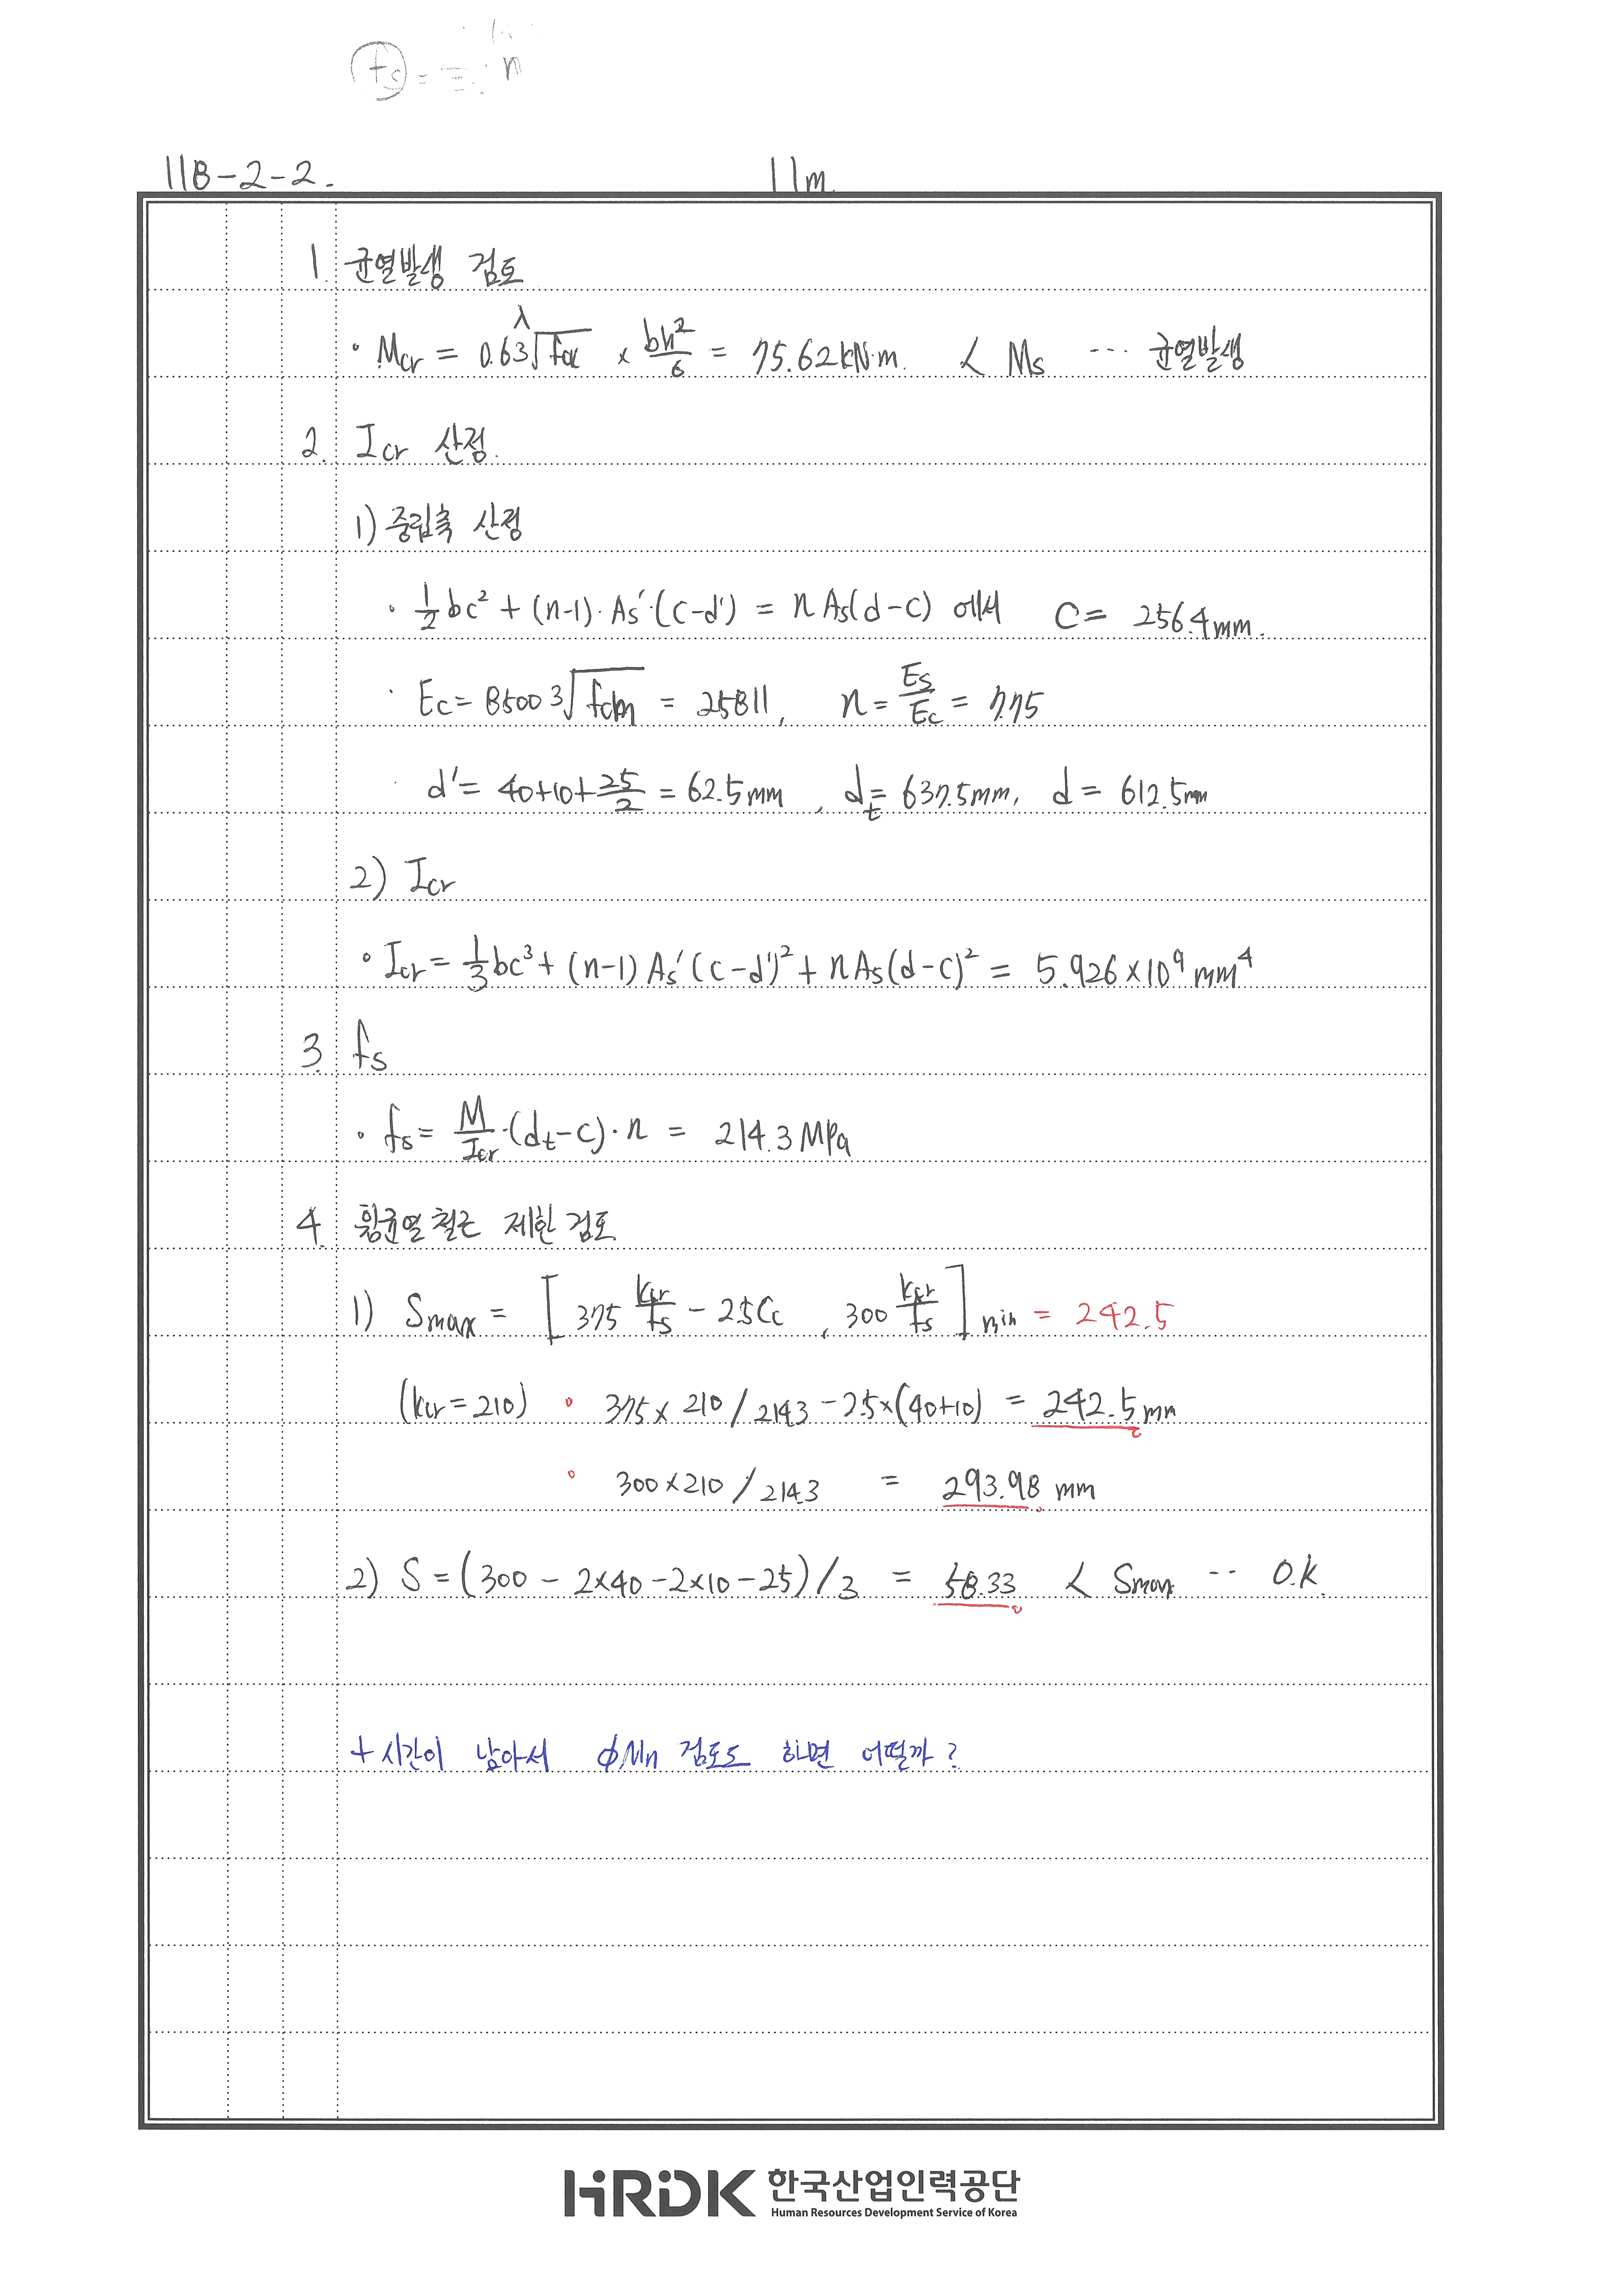 fs = n
118-2-2.
11m
1. 균열발생 검토
· Mcr = 0.63λ√fck × bh²/6 = 75.62kN·m. < Ms ··· 균열발생
2. Icr 산정.
1) 중립축 산정
· 1/2 bc² + (n-1)·As'·(c-d') = nAs(d-c) 에서 C = 256.4mm.
· Ec = 8500 ³√fcm = 25811, n = Es/Ec = 7.75
· d' = 40+10+25/2 = 62.5mm, dt = 637.5mm, d = 612.5mm
2) Icr
· Icr = 1/3 bc³ + (n-1)As'(c-d')² + nAs(d-c)² = 5.926×10⁹mm⁴
3. fs
· fs = M/Icr·(dt-c)·n = 214.3MPa
4. 휨균열 철근 제한 검토
1) Smax = [375 kcr/fs - 2.5Cc, 300 kcr/fs]min = 242.5
(kcr = 210) · 375×210/214.3 - 2.5×(40+10) = 242.5mm
· 300×210/214.3 = 293.98mm
2) S = (300 - 2×40 - 2×10 - 25)/3 = 58.33 < Smax ·· O.K.
+ 시간이 남아서 φMn 검토도 하면 어떨까?
HRDK 한국산업인력공단
Human Resources Development Service of Korea